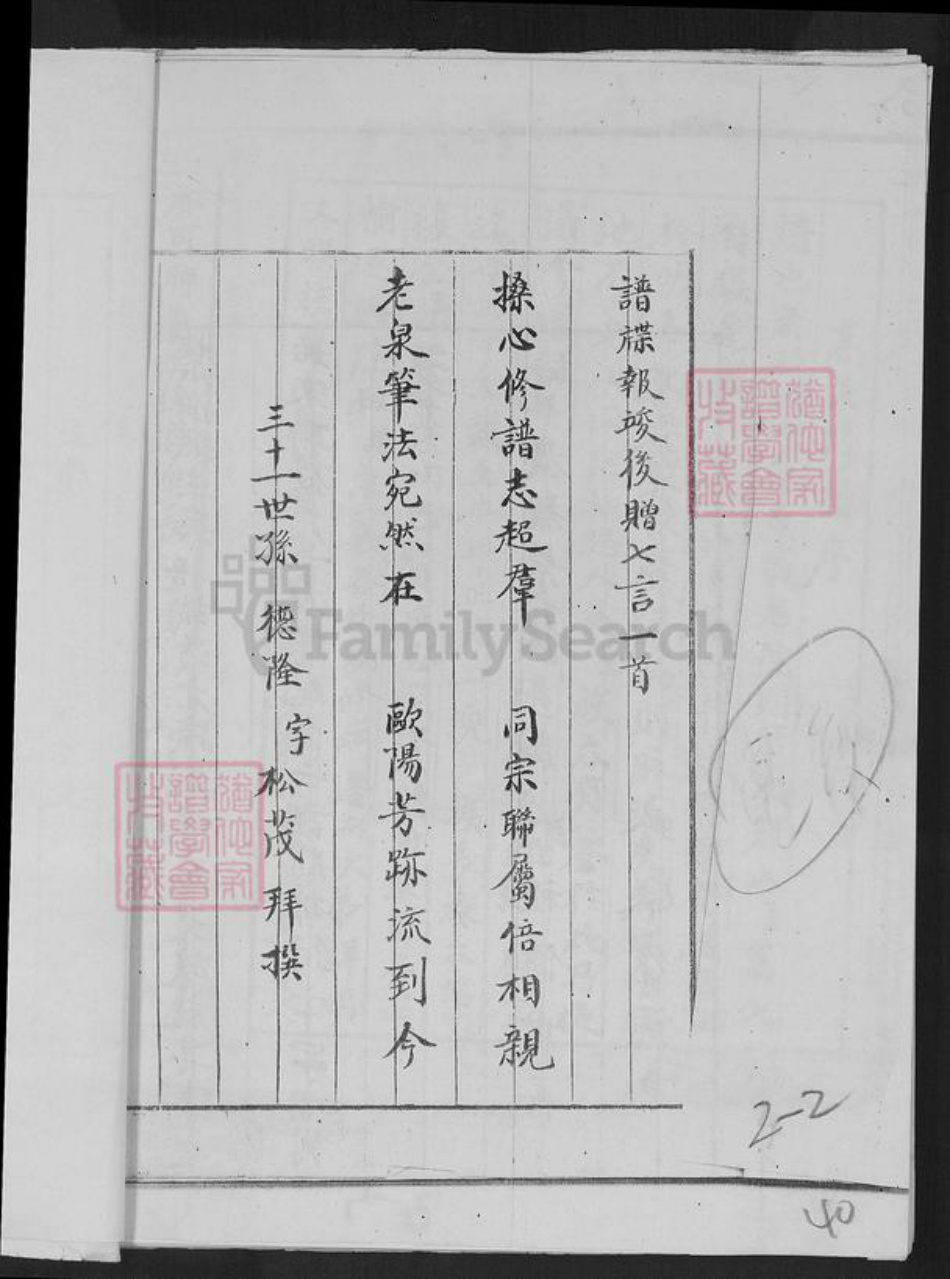 譜牒報竣後贈七言一首
操心修譜志超羣　同宗聯屬倍相親
老泉筆法宛然在　歐陽芳跡流到今
三十一世孫　德隆　字松茂　拜撰
譜學會
特藏
譜學會
特藏
FamilySearch
2-2
40